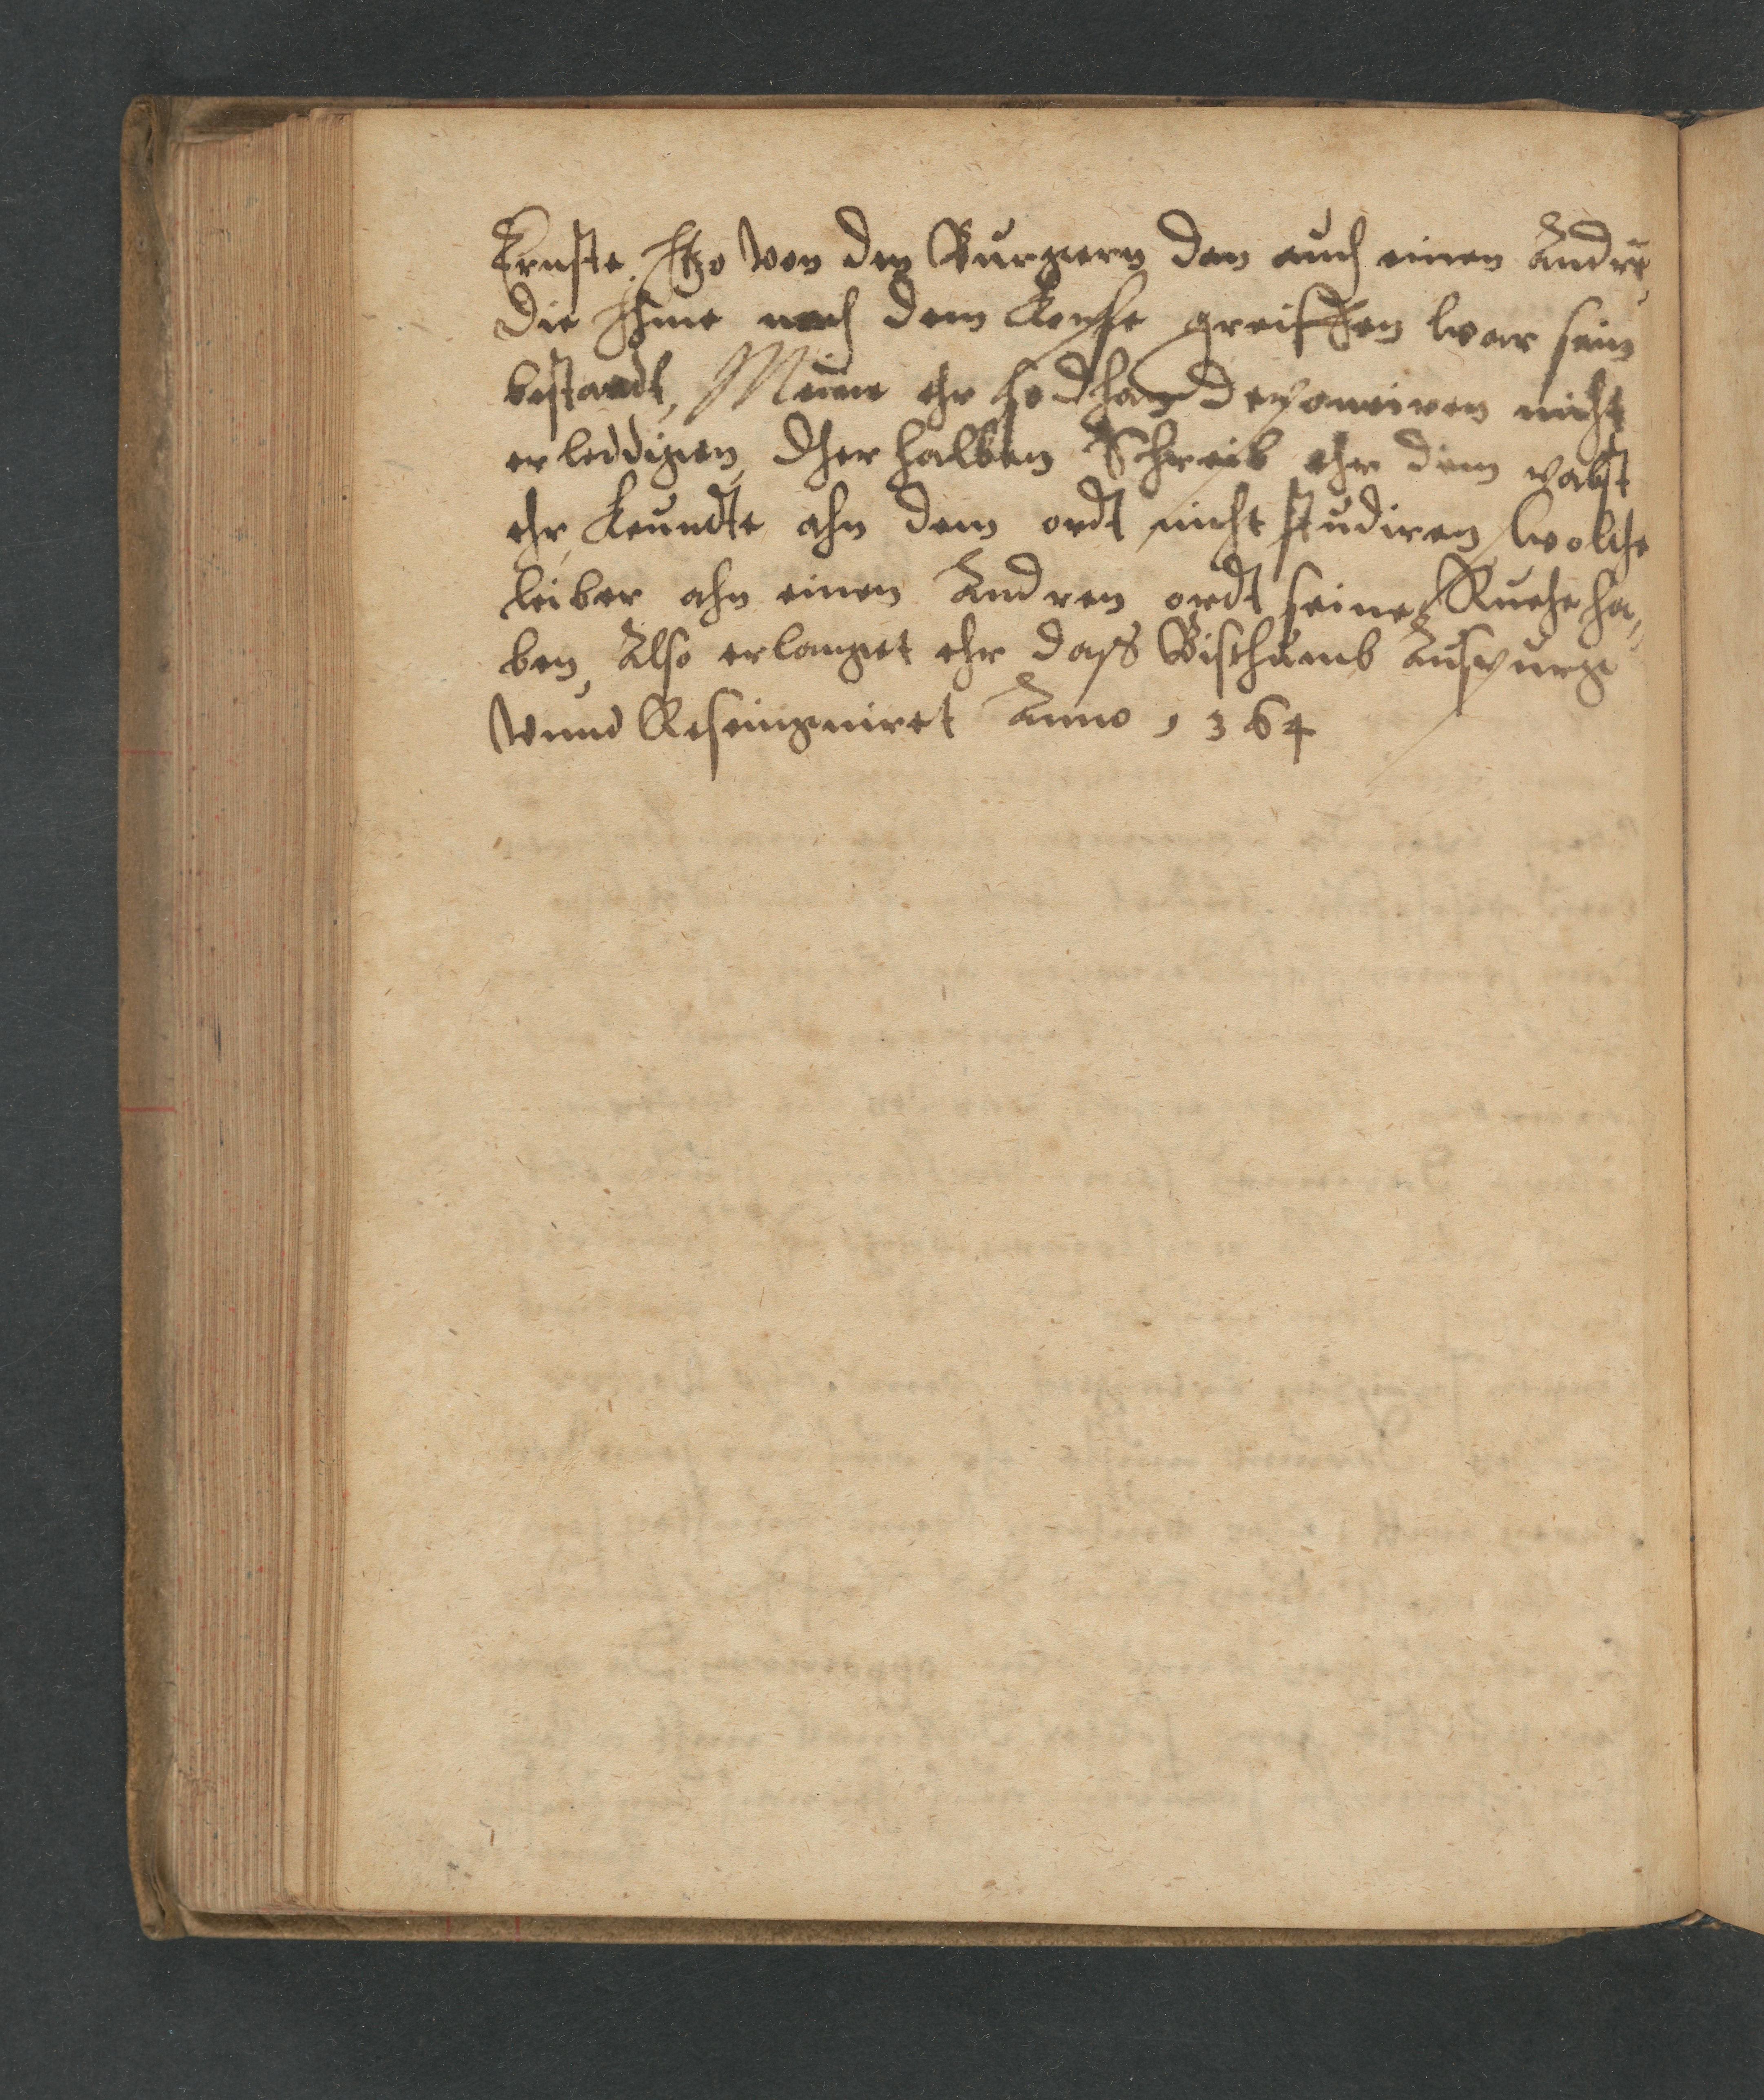 Ernste, Itzo von den Burgern dan auch einen Andre,
die Ihme nach dem Kopfe greiffen war sein
bestandt, Meine ehr sich deponeiren nicht
erleddigen, dherhalben Schreib ehr dem pabst
ehr keundte ahn dem ordt nicht studiren wolthe
leiber ahn einen Andren ordt seine Ruehe ha,,
ben, Also erlanget ehr daß Bisthumb Auspurg
Vnnd Reseingniret Anno 1364